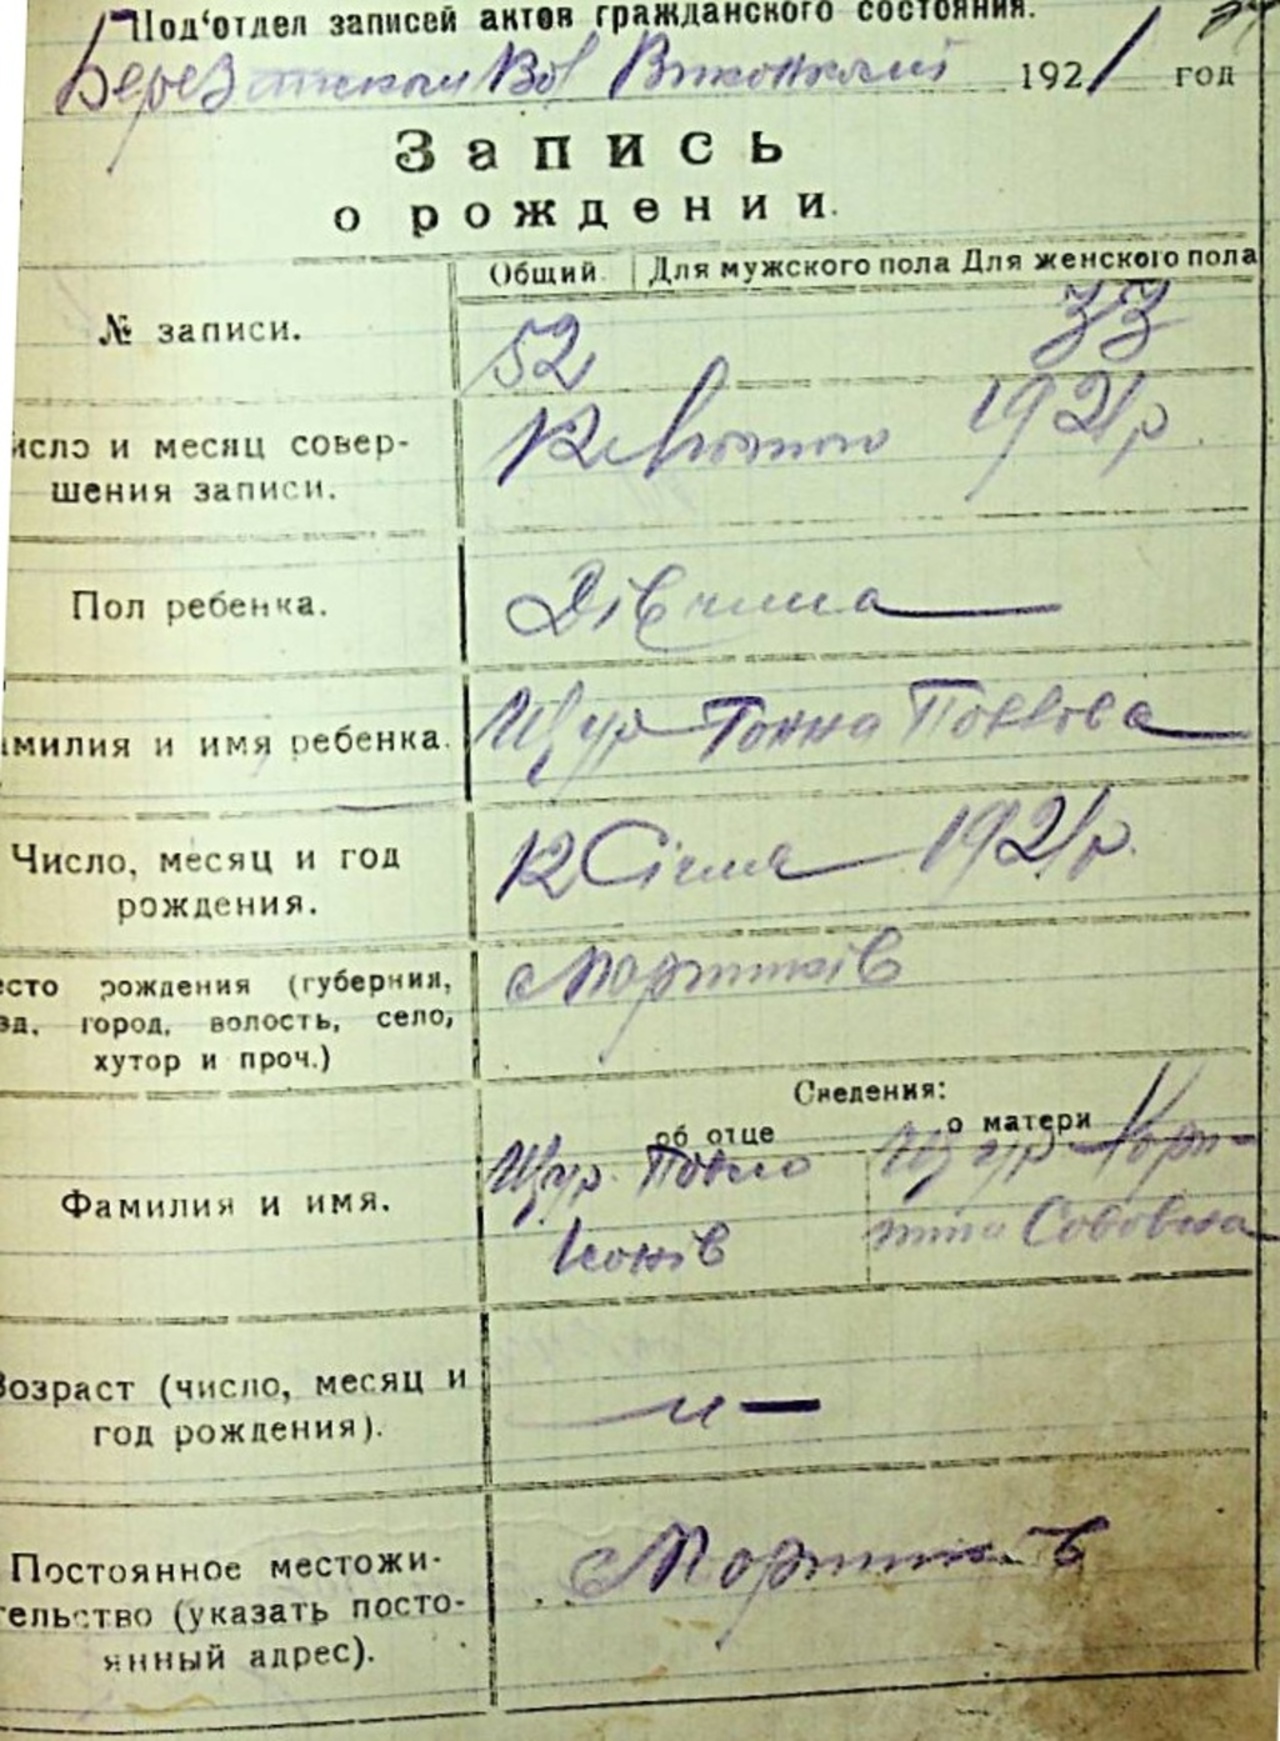 Под'отдел записей актов гражданского состояния.
Берез Вол 1921 год
Запись
о рождении.
Общий Для мужского пола Для женского пола
№ записи. 52 33
исло и месяц совер- 12 Лютого 1921 р.
шения записи.
Пол ребенка. Дівчина
амилия и имя ребенка. Щур Ганна Павлова
Число, месяц и год 12 Січня 1921 р.
рождения.
есто рождения (губерния, Мартинків
зд, город, волость, село,
хутор и проч.)
Сведения:
об отце о матери
Щур Павло Щур
Фамилия и имя.
Савовна
Возраст (число, месяц и
год рождения). — „ —
Постоянное местожи- Мартинків
тельство (указать посто-
янный адрес).